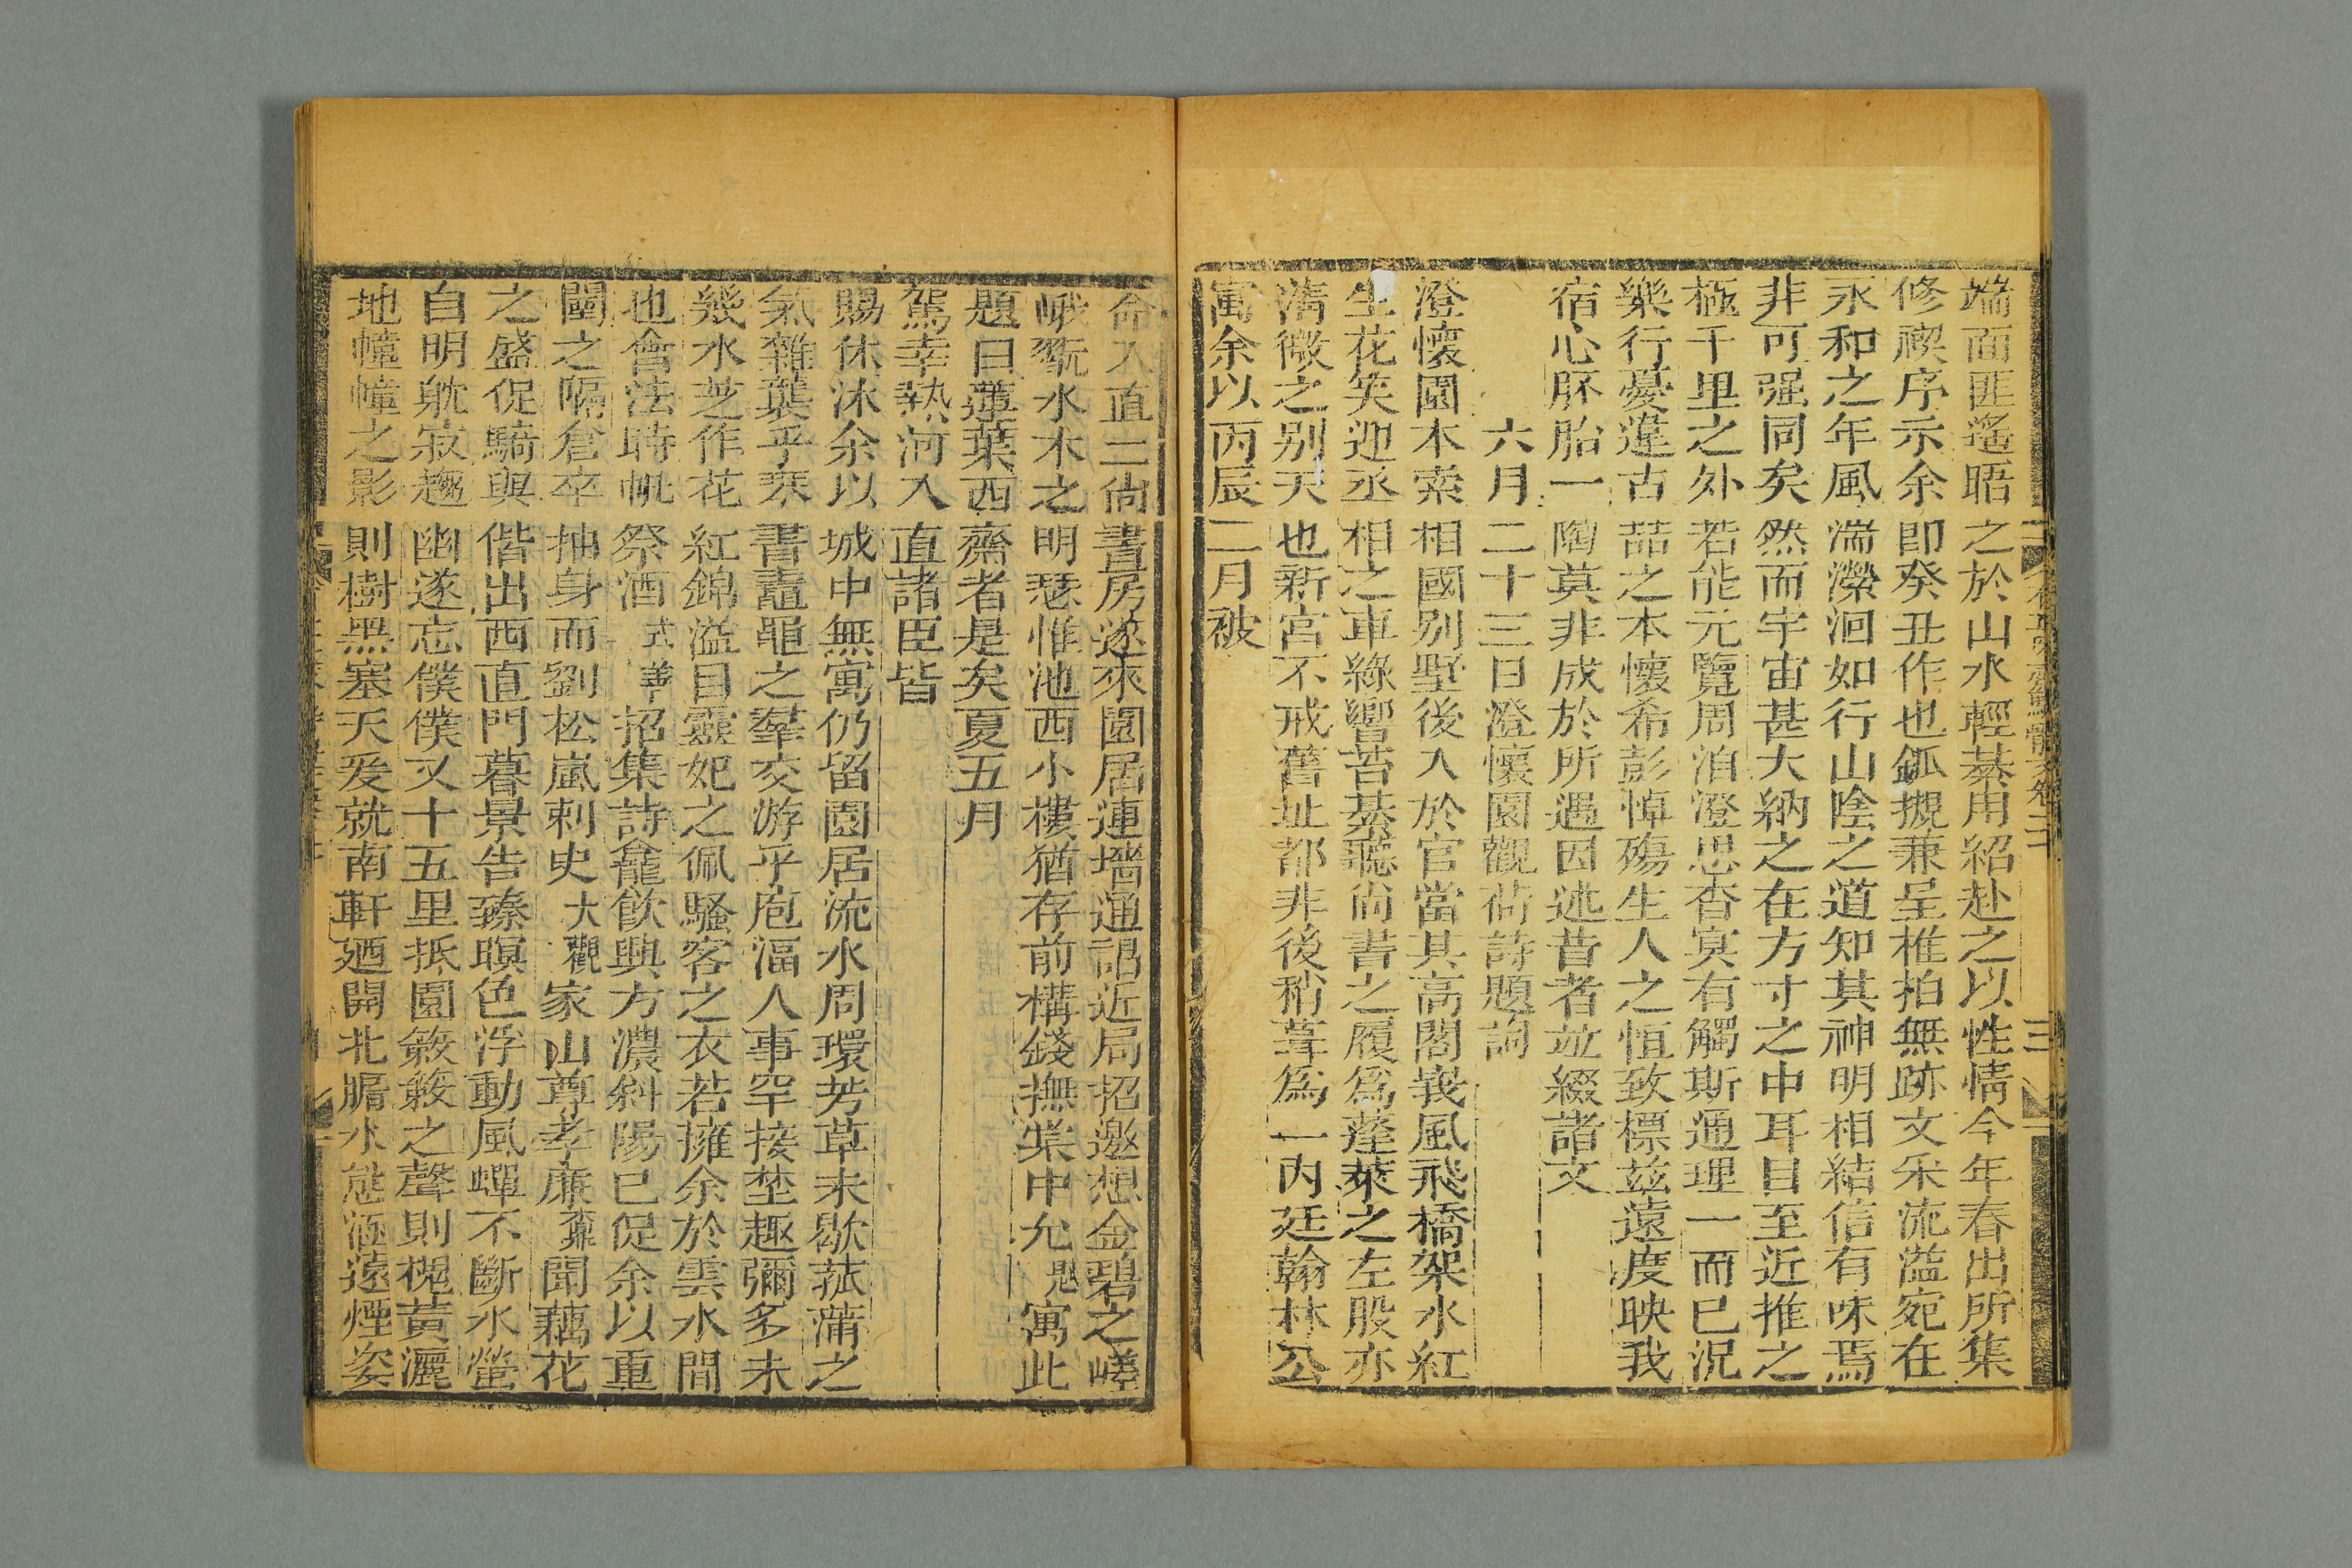 端面匪遙晤之於山水輕綦用紹赴之以性情今年春出所集
修禊序示余即癸丑作也㼌摫兼呈椎拍無跡文采流溢宛在
永和之年風湍濴洄如行山陰之道知其神明相結信有味焉
非可强同矣然而宇宙甚大納之在方寸之中耳目至近推之
極千里之外若能元覽周洎澄思杳冥有觸斯通理一而已況
樂行憂違古喆之本懷希彭悼殤生人之恒致標茲遠度映我
宿心胚胎一陶莫非成於所遇因述昔者竝綴諸文
六月二十三日澄懷園觀荷詩題詞
澄懷園本索相國別墅後入於官當其高閣峩風飛橋架水紅
生花矣迎丞相之車綠響苔棊聽尚書之履爲蓬萊之左股亦
淸微之別天也新宮不戒舊址都非後稍葺爲一內廷翰林公
寓余以丙辰二月被
命入直三尙書房遂來園居連墻通謁近局招邀想金碧之嵯
峨翫水木之明瑟惟池西小樓猶存前構錢撫棠中允寓此
題曰蓮葉西齋者是矣夏五月
駕幸熱河入直諸臣皆
賜休沐余以城中無寓仍留園居流水周環芳草未歇菰蒲之
氣雜襲乎琹書鼃黽之羣交游乎庖湢人事罕接埜趣彌多未
幾水芝作花紅錦溢目靈妃之佩騷客之衣若擁余於雲水間
也會法時帆祭酒式善招集詩龕飮興方濃斜陽已促余以重
闉之隔倉卒抽身而劉松嵐刺史大觀家山尊孝廉鼒聞藕花
之盛促騎與偕出西直門暮景告臻暝色浮動風蟬不斷水螢
自明躭寂趣幽遂忘僕僕又十五里抵園簌簌之聲則槐黃灑
地幢幢之影則樹黑塞天爰就南軒廼開北牖水態涵遠煙姿